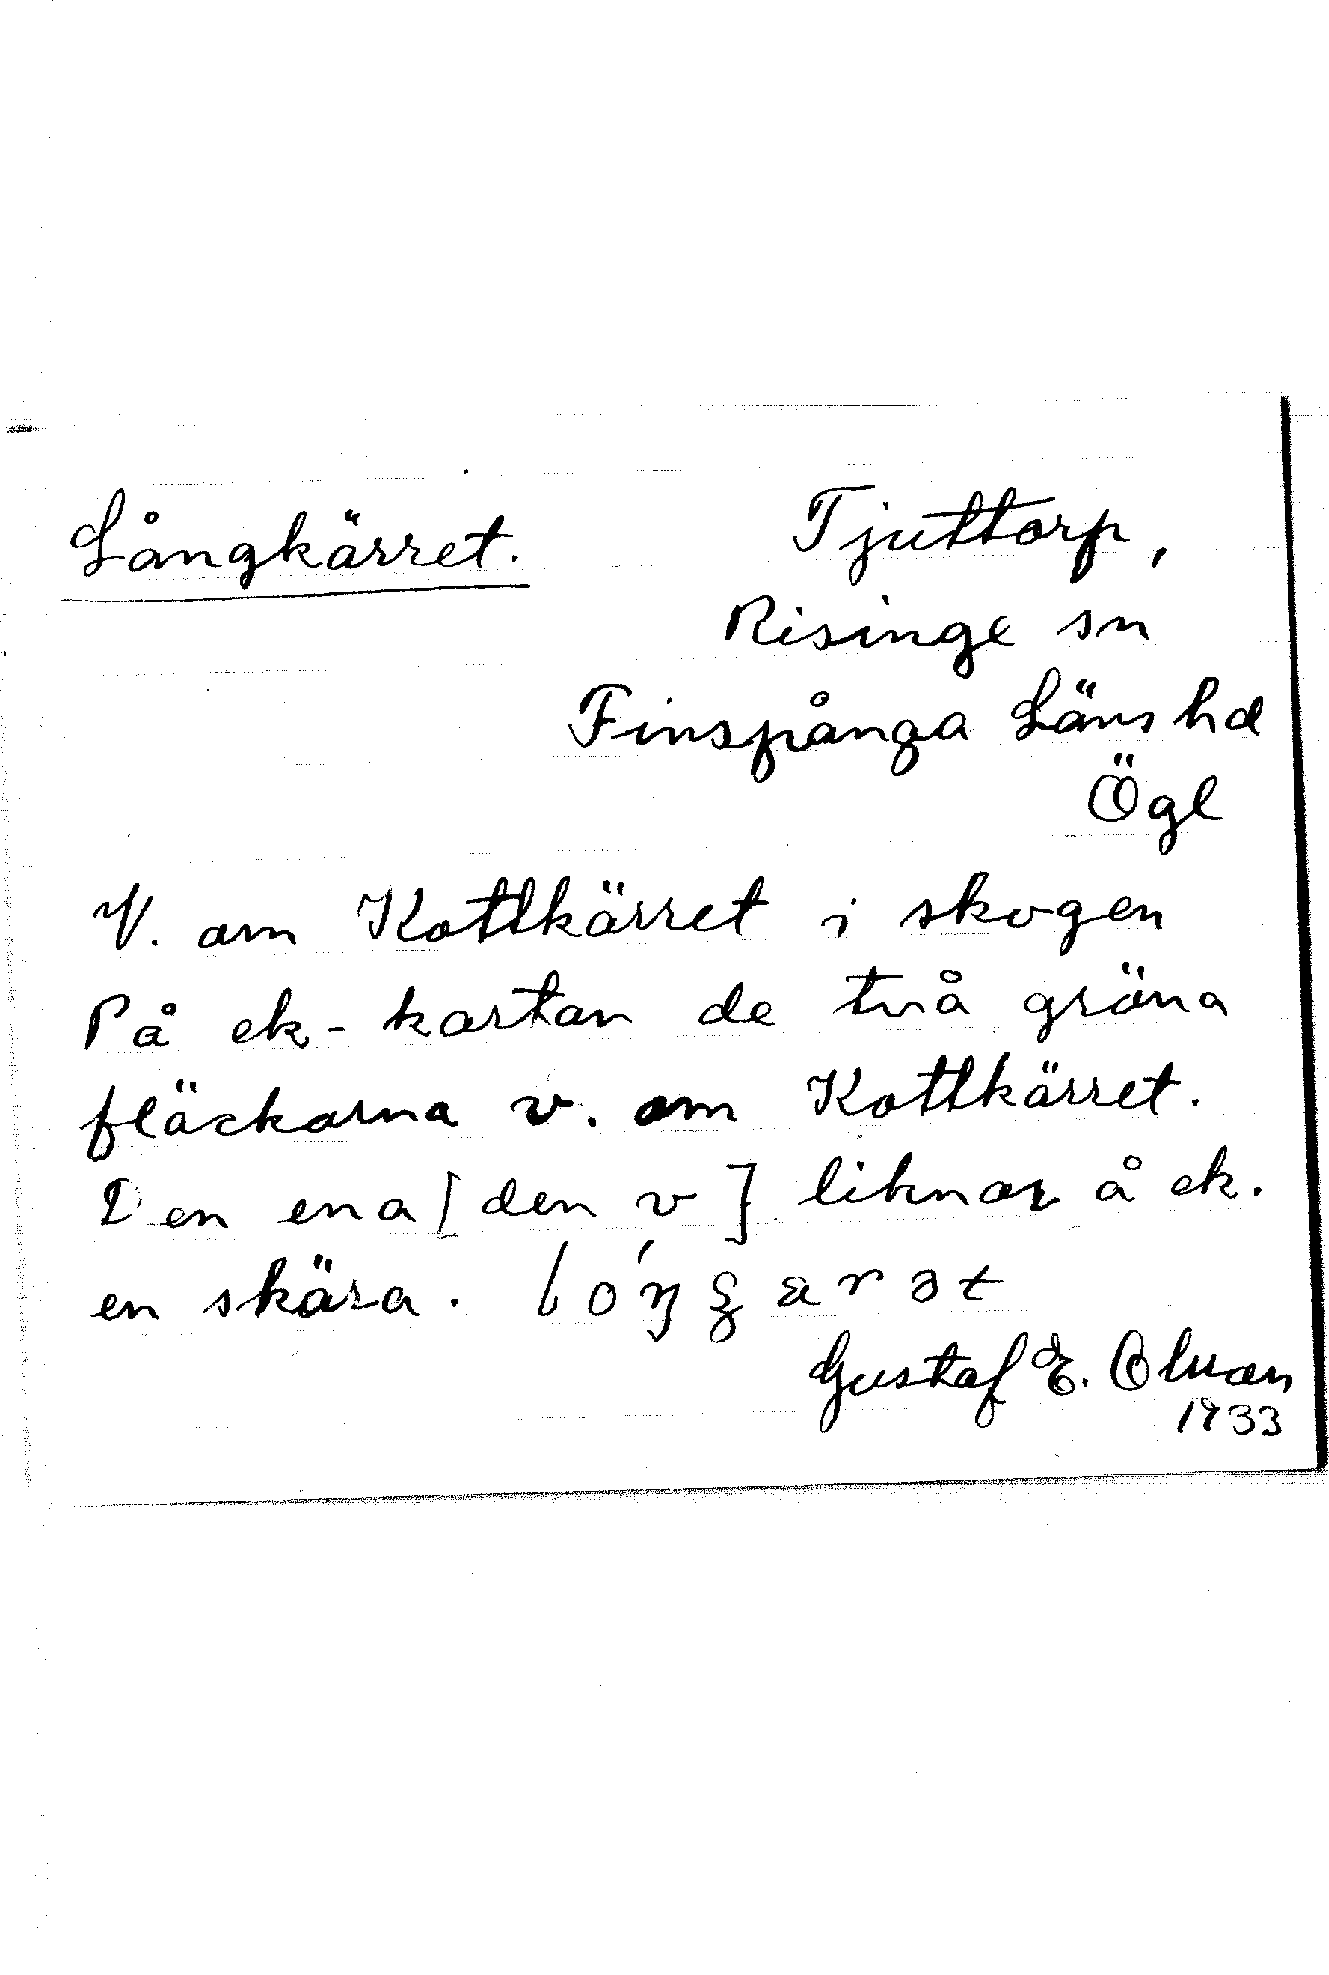 Långkärret.
Tjuttorp,
Risinge sn
Finspånga Läns hd
Ögl
V. om Kottkärret i skogen
På ek-kartan de två gröna
fläckarna v. om Kottkärret.
Den ena [den v] liknar å ek.
en skära.
Gustaf E.
1933